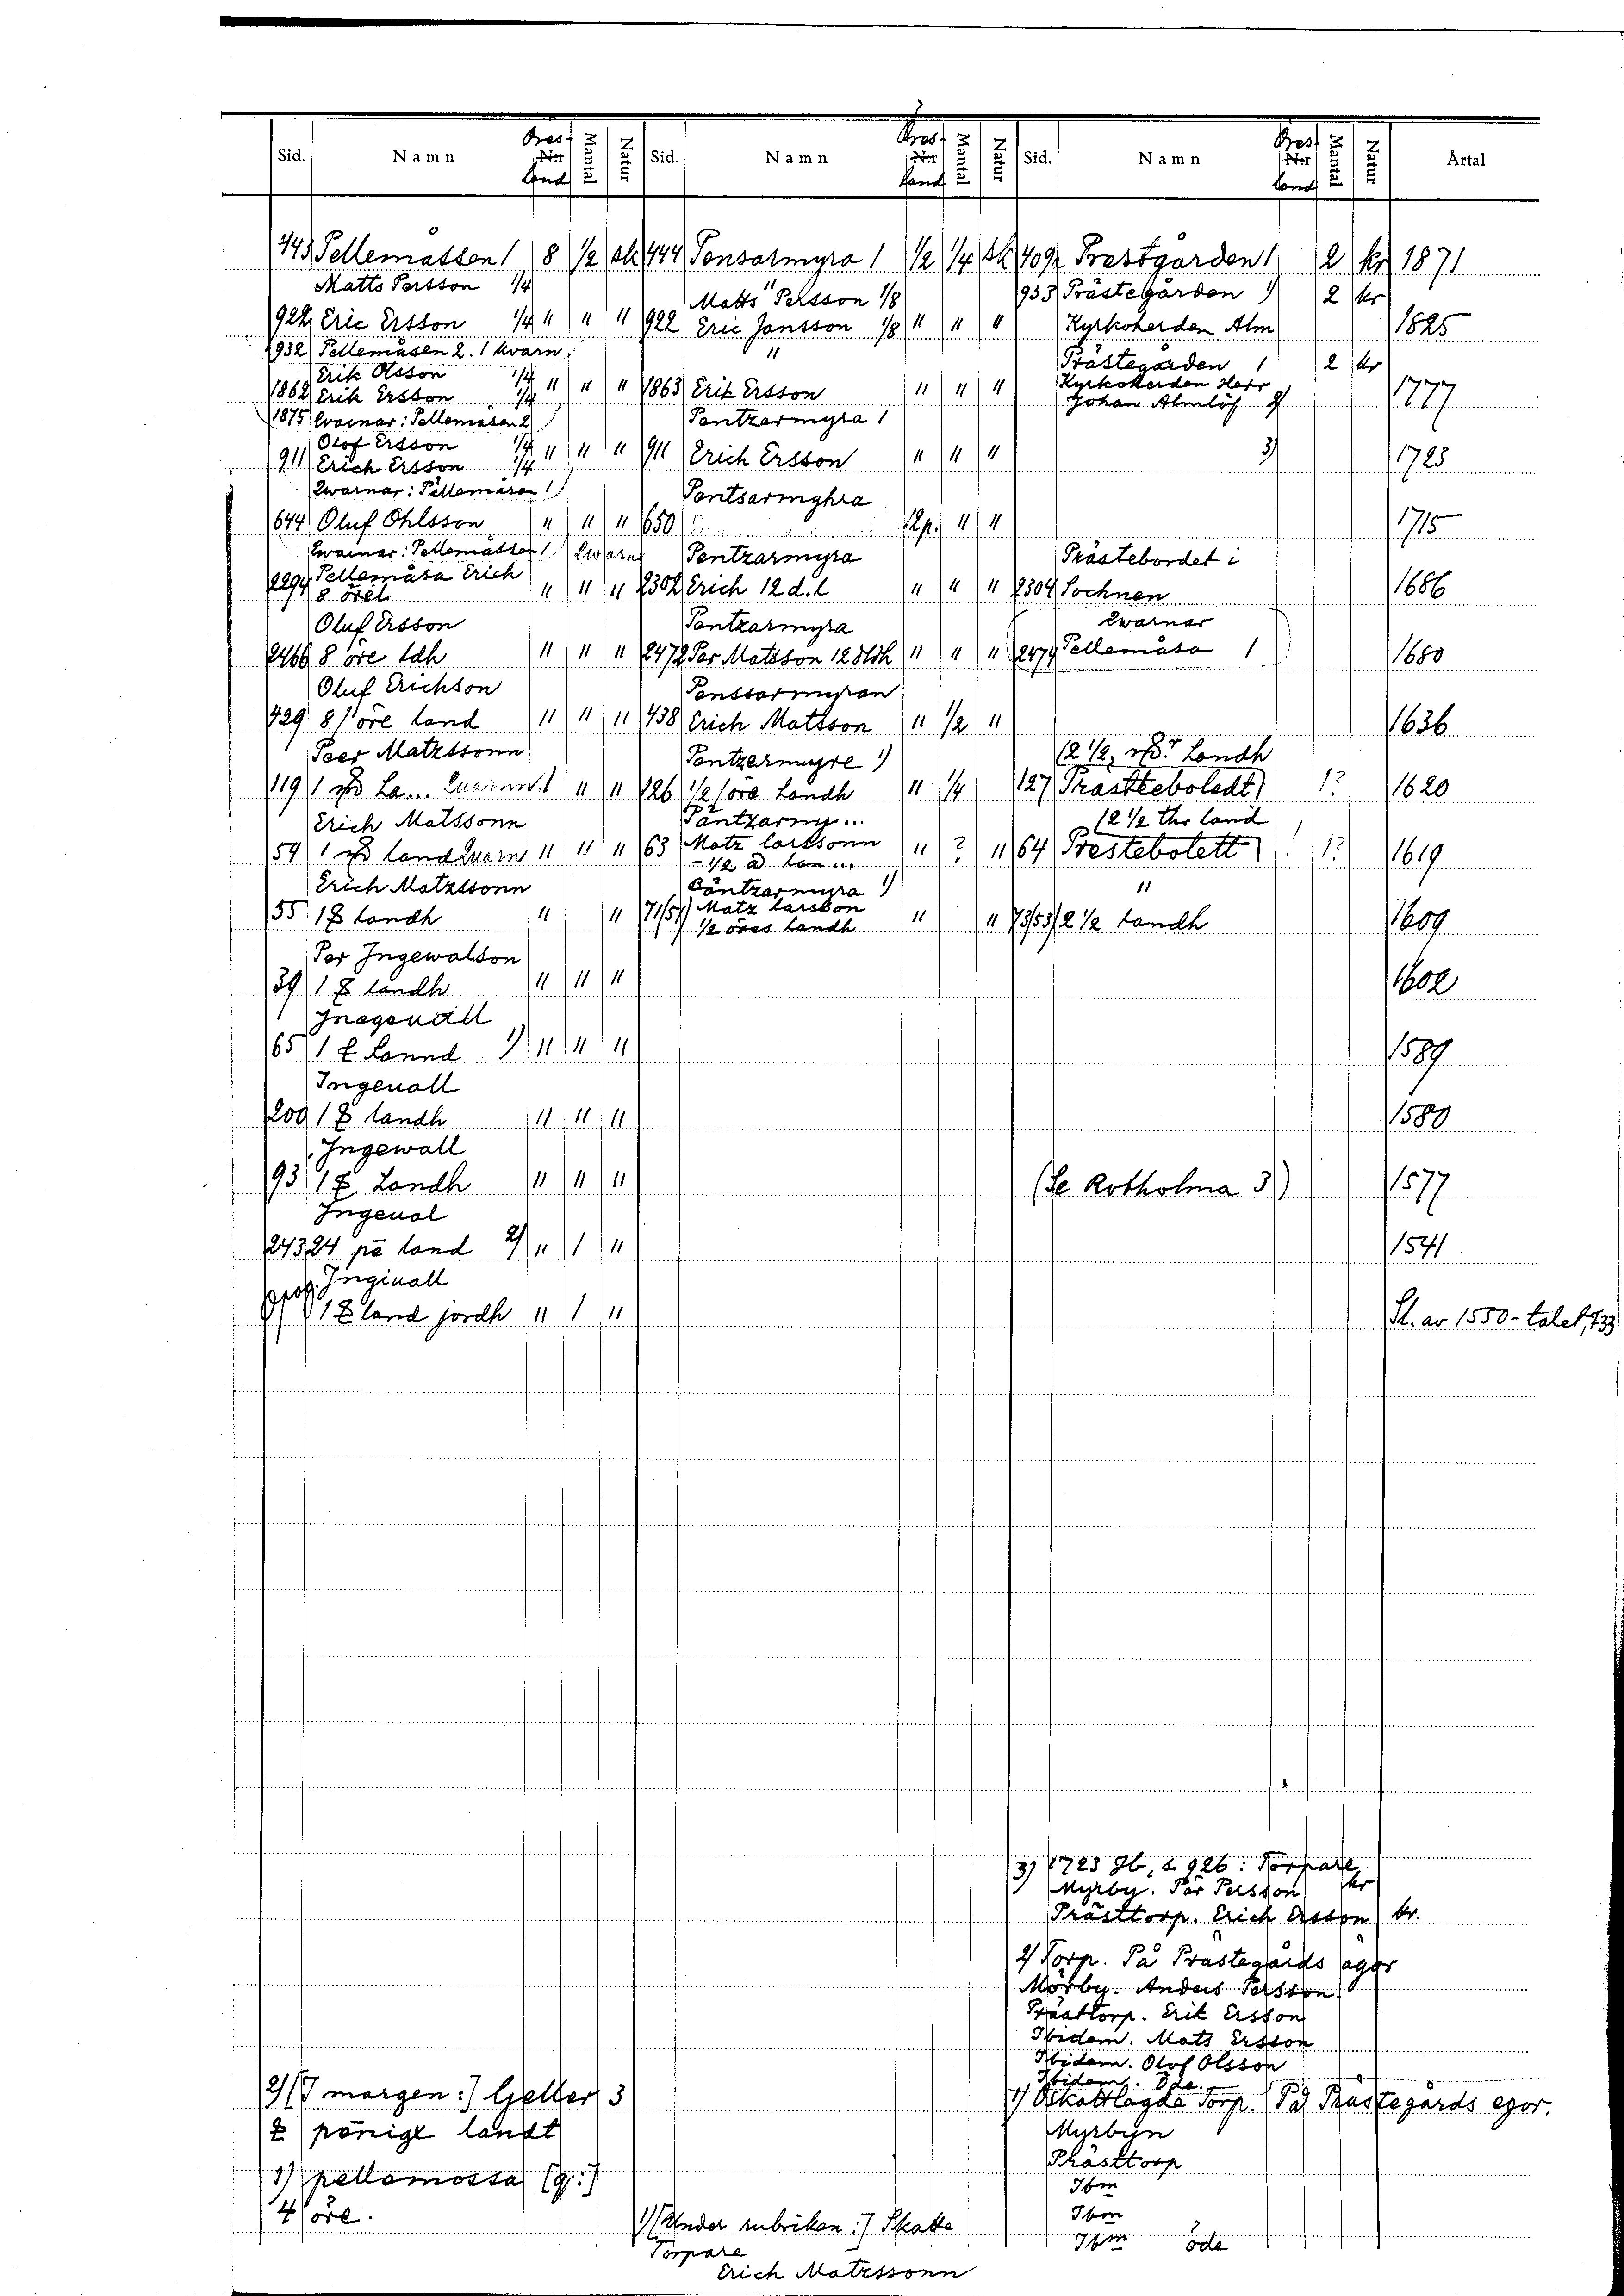 Sid. Namn Öres land Mantal Natur Sid. Namn Öres land Mantal Natur Sid. Namn Öres land Mantal Natur Årtal
443 Pellemåssen 1 8 1/2 sk 444 Ponsarmyra 1 1/2 1/4 sk 409 Prestgården 1 2 kr 1871
Matts Persson 1/4 Matts Persson 1/8 933 Prästegården 1) 2 kr
922 Eric Ersson 1/4 " " " 922 Eric Jansson 1/8 " " " Kyrkoherden Alm 1825
932 Pellemåsen 2. 1 kvarn " Prästegården 1 2 kr
Erik Olsson 1/4 Kyrkoherden Herr
1862 Erik Ersson 1/4 " " " 1863 Erik Ersson " " " Johan Almlöf 2) 1777
1875 Qvarnar: Pellemåsen 2 Pentzarmyra 1
Olof Ersson 1/4
911 Erich Ersson 1/4 " " " 911 Erich Ersson " " " 3) 1723
Qwarnar: Pellemåsen 1 Pentsarmyhra
644 Oluf Ohlsson " " " 650 12p. " " 1715
Qwarnar: Pellemåssen 1 Qwarn Pentzarmyra Prästebordet i
Pellemåsa Erich
2294 8 örel. " " " 2302 Erich 12 d. l " " " 2304 Sochnen 1686
Oluf Ersson Pentzarmyra Qwarnar
2466 8 öre ldh " " " 2472 Per Matsson 12 dldh " " " 2474 Pellemåsa 1 1680
Oluf Erichson Penssarmyran
429 8 öre land " " " 438 Erich Matsson " 1/2 " 1636
Peer Matzssonn Pentzermyre 1) (2 1/2 Landh
119 1 La... Quarnn 1 " " 126 1/2 öre Landh " 1/4 127 Prästebolet 1? 1620
Erich Matssonn Päntzarmy... (2 1/2 land
54 1 land Quarn " " " 63 Matz larssonn " ? " 64 Prestebolett 1? 1619
- 1/2 lan...
Erich Matzssonn Päntzarmyra 1) "
55 1 landh " " 71/51 Matz larsson " " 73/53 2 1/2 landh 1609
1/2 öres landh
Per Ingewalson
39 1 landh " " " 1602
Inegeuall
65 1 Lannd 1) " " " 1589
Ingeuall
200 1 landh " " " 1580
Ingewall
93 1 Landh " " " (Se Rotholma 3) 1577
Ingeual
243 24 pē land 2) " 1 " 1541
Inginall
1 land jordh " 1 " Sl. av 1550-talet, 733
3) 1723 Jb, s. 926: Torpare
Myrby. Pär Persson kr
Prästtorp. Erich Ersson kr.
2) Torp. På Prästegårds ägor
Mörby. Anders Persson
Prästtorp. Erik Ersson
Ibidem. Mats Ersson
Ibidem. Olof Olsson
Ibidem. Öde.
2) [I margen:] Geller 3
penige landt
1) pellemossa
4 öre.
1) Oskattlagda Torp. På Prästegårds egor.
Myrbyn
Prästtorp
Ibm
Ibm
Ibm öde
1) [Under rubriken:] Skatte
Torpare
Erich Matzssonn